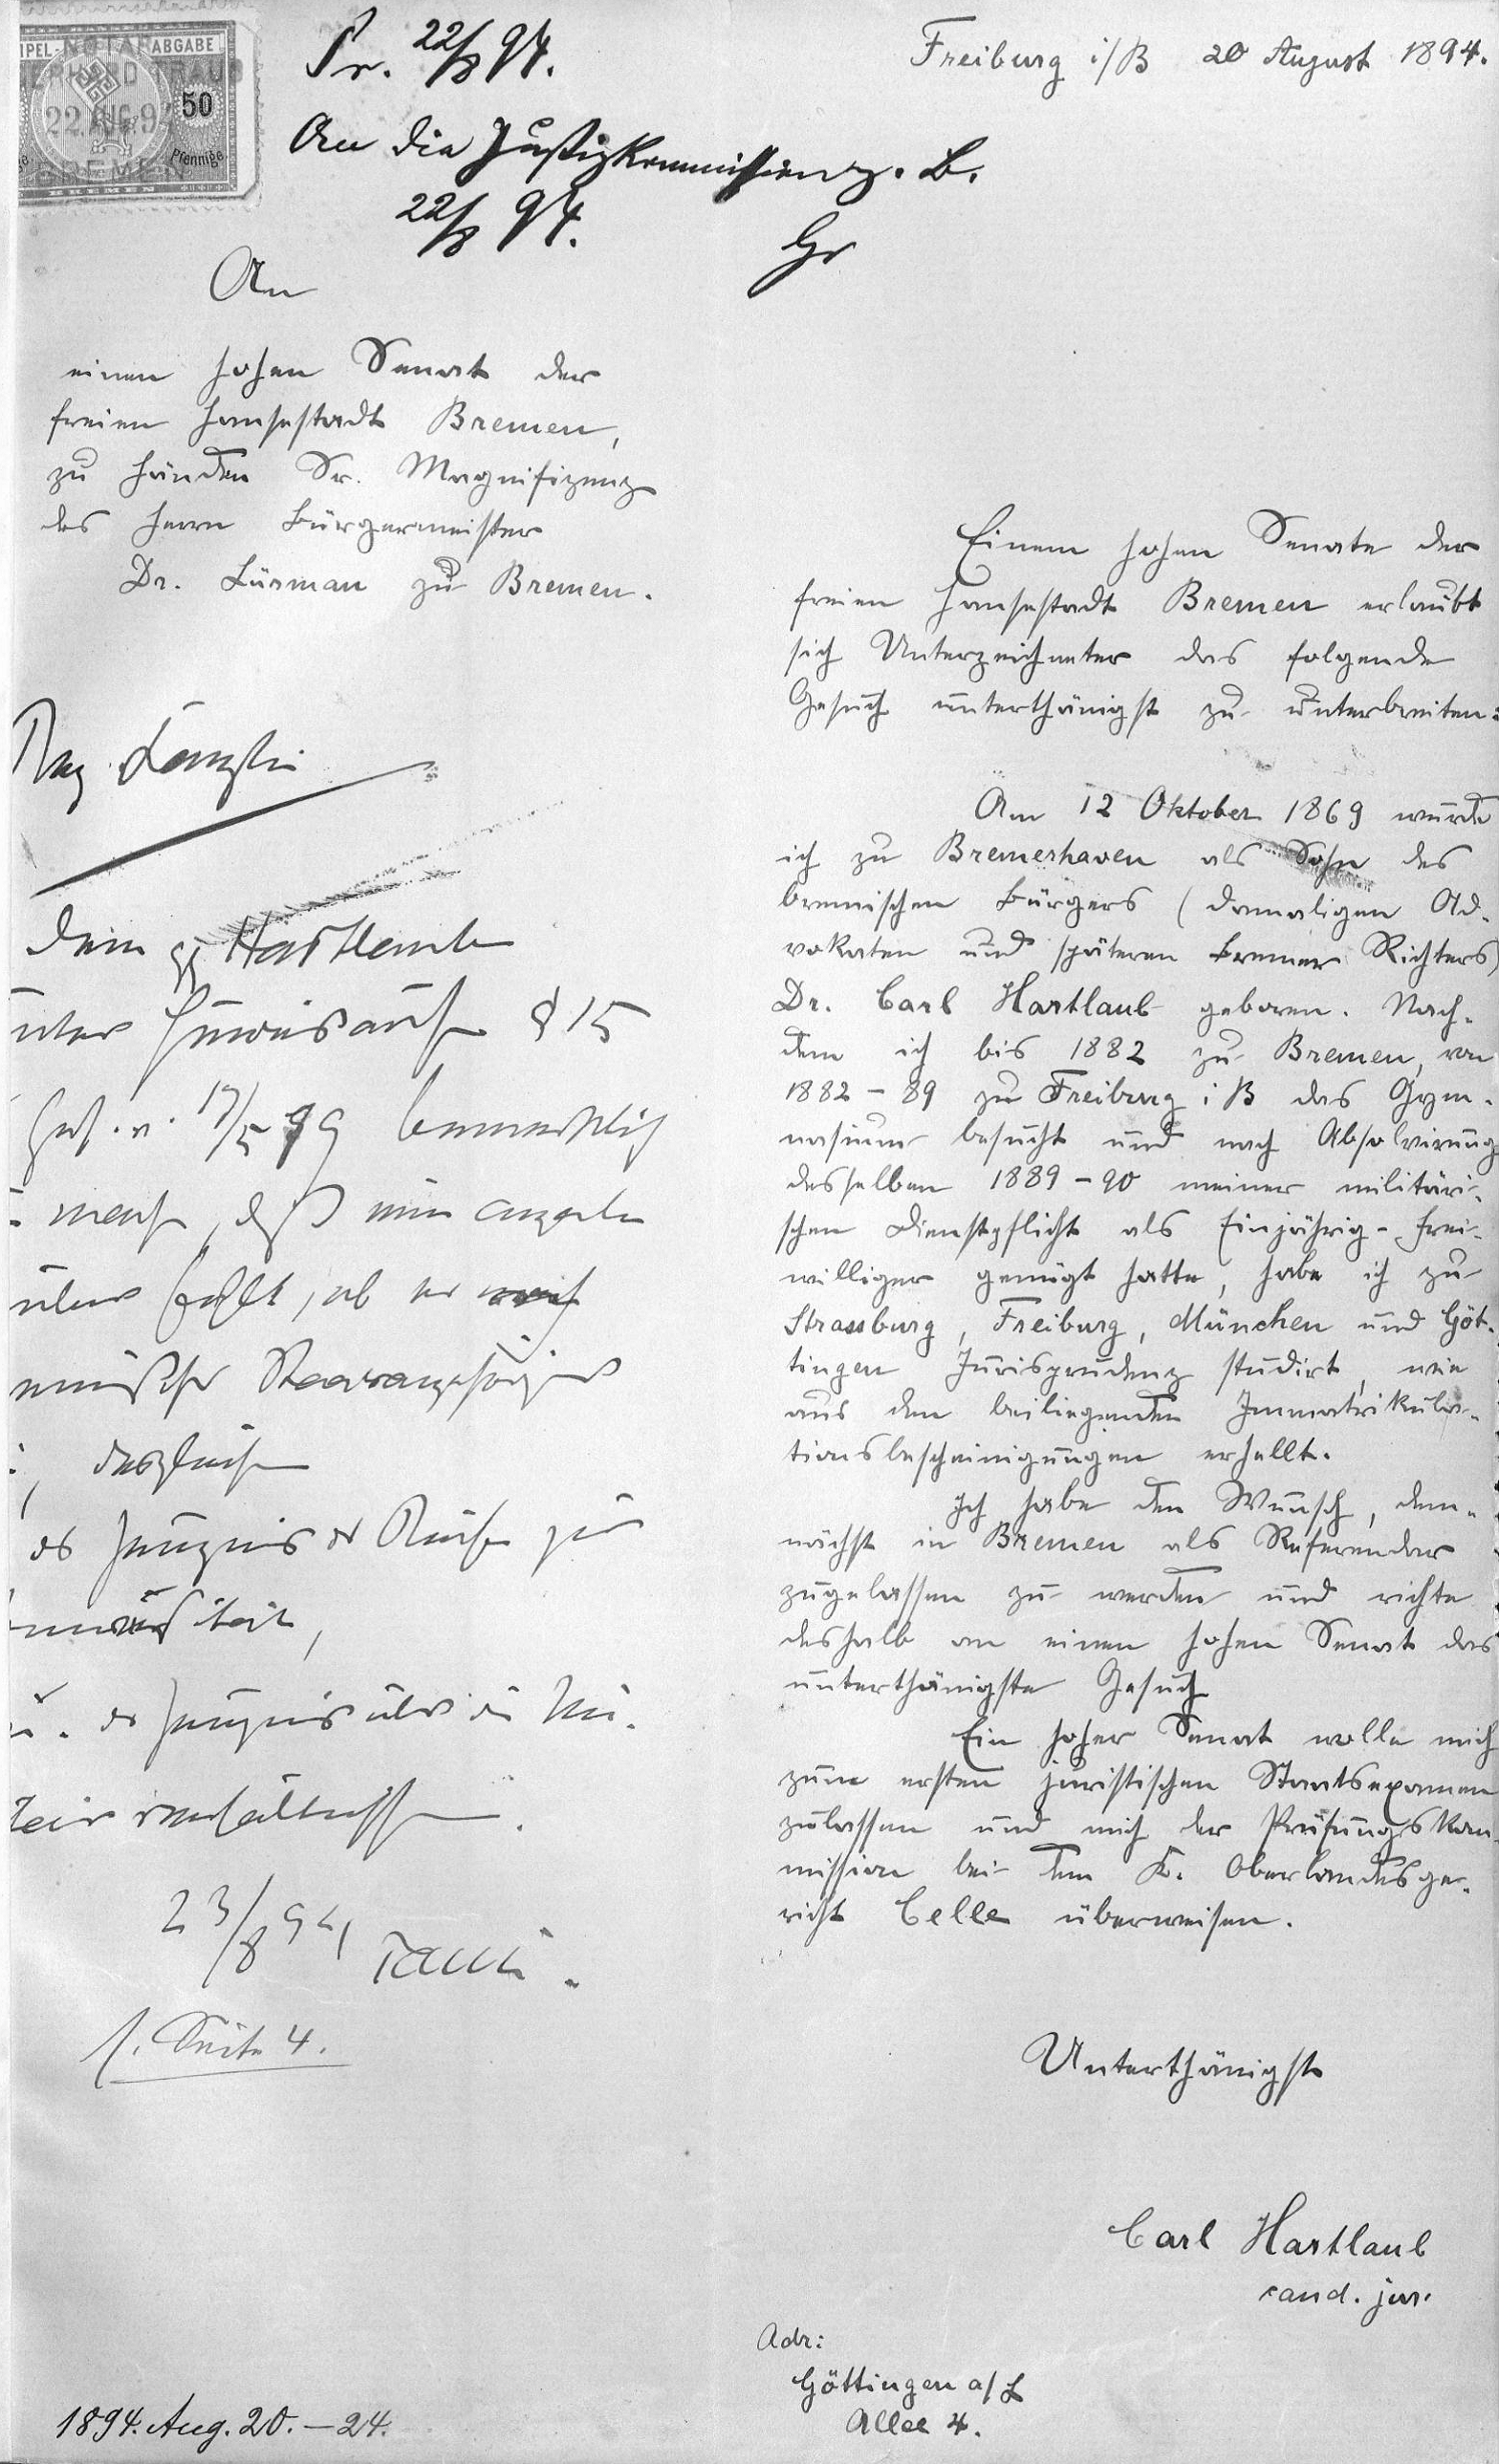 STEMPEL-ABGABE
NOTAR
22. AUG. 94
50
Pfennige
BREMEN
BREMEN
Pr. 22/8 94.
An die Justizkommission z. B.
22/8 94.
Gr
An
einen hohen Senat der
freien Hansestadt Bremen,
zu Händen Sr. Magnifizenz
des Herrn Bürgermeister
Dr. Lürman zu Bremen.
Reg. Kanzlei
dem Hartlaub
unter Hinweis auf § 15
Ges. v. 17/5 79 bemerklich
z. mach, daß eine Angabe
über fehlt, ob er
Staatsangehöriger
desgleichen
das Zeugnis der Reife zur
Universität,
u. das Zeugnis über die Mi-
verhältnisse.
23/8 94
s. Seite 4.
1894. Aug. 20.–24.
Freiburg i/B 20 August 1894.
Einem hohen Senate der
freien Hansestadt Bremen erlaubt
sich Unterzeichneter das folgende
Gesuch unterthänigst zu unterbreiten:
Am 12 Oktober 1869 wurde
ich zu Bremerhaven als Sohn des
bremischen Bürgers (damaligen Ad-
vokaten und späteren Bremer Richters)
Dr. Carl Hartlaub geboren. Nach-
dem ich bis 1882 zu Bremen, von
1882–89 zu Freiburg i B das Gym-
nasium besucht und nach Absolvirung
desselben 1889–90 meiner militäri-
schen Dienstpflicht als Einjährig-Frei-
williger genügt hatte, habe ich zu
Strassburg, Freiburg, München und Göt-
tingen Jurisprudenz studirt, wie
aus den beiliegenden Immatrikula-
tionsbescheinigungen erhellt.
Ich habe den Wunsch, dem-
nächst in Bremen als Referendar
zugelassen zu werden und richte
deshalb an einen hohen Senat das
unterthänigste Gesuch
Ein hoher Senat wolle mich
zum ersten juristischen Staatsexamen
zulassen und mich der Prüfungskom-
mission bei dem K. Oberlandesge-
richt Celle überweisen.
Unterthänigst
Carl Hartlaub
cand. jur.
Adr:
Göttingen a/L
Allee 4.